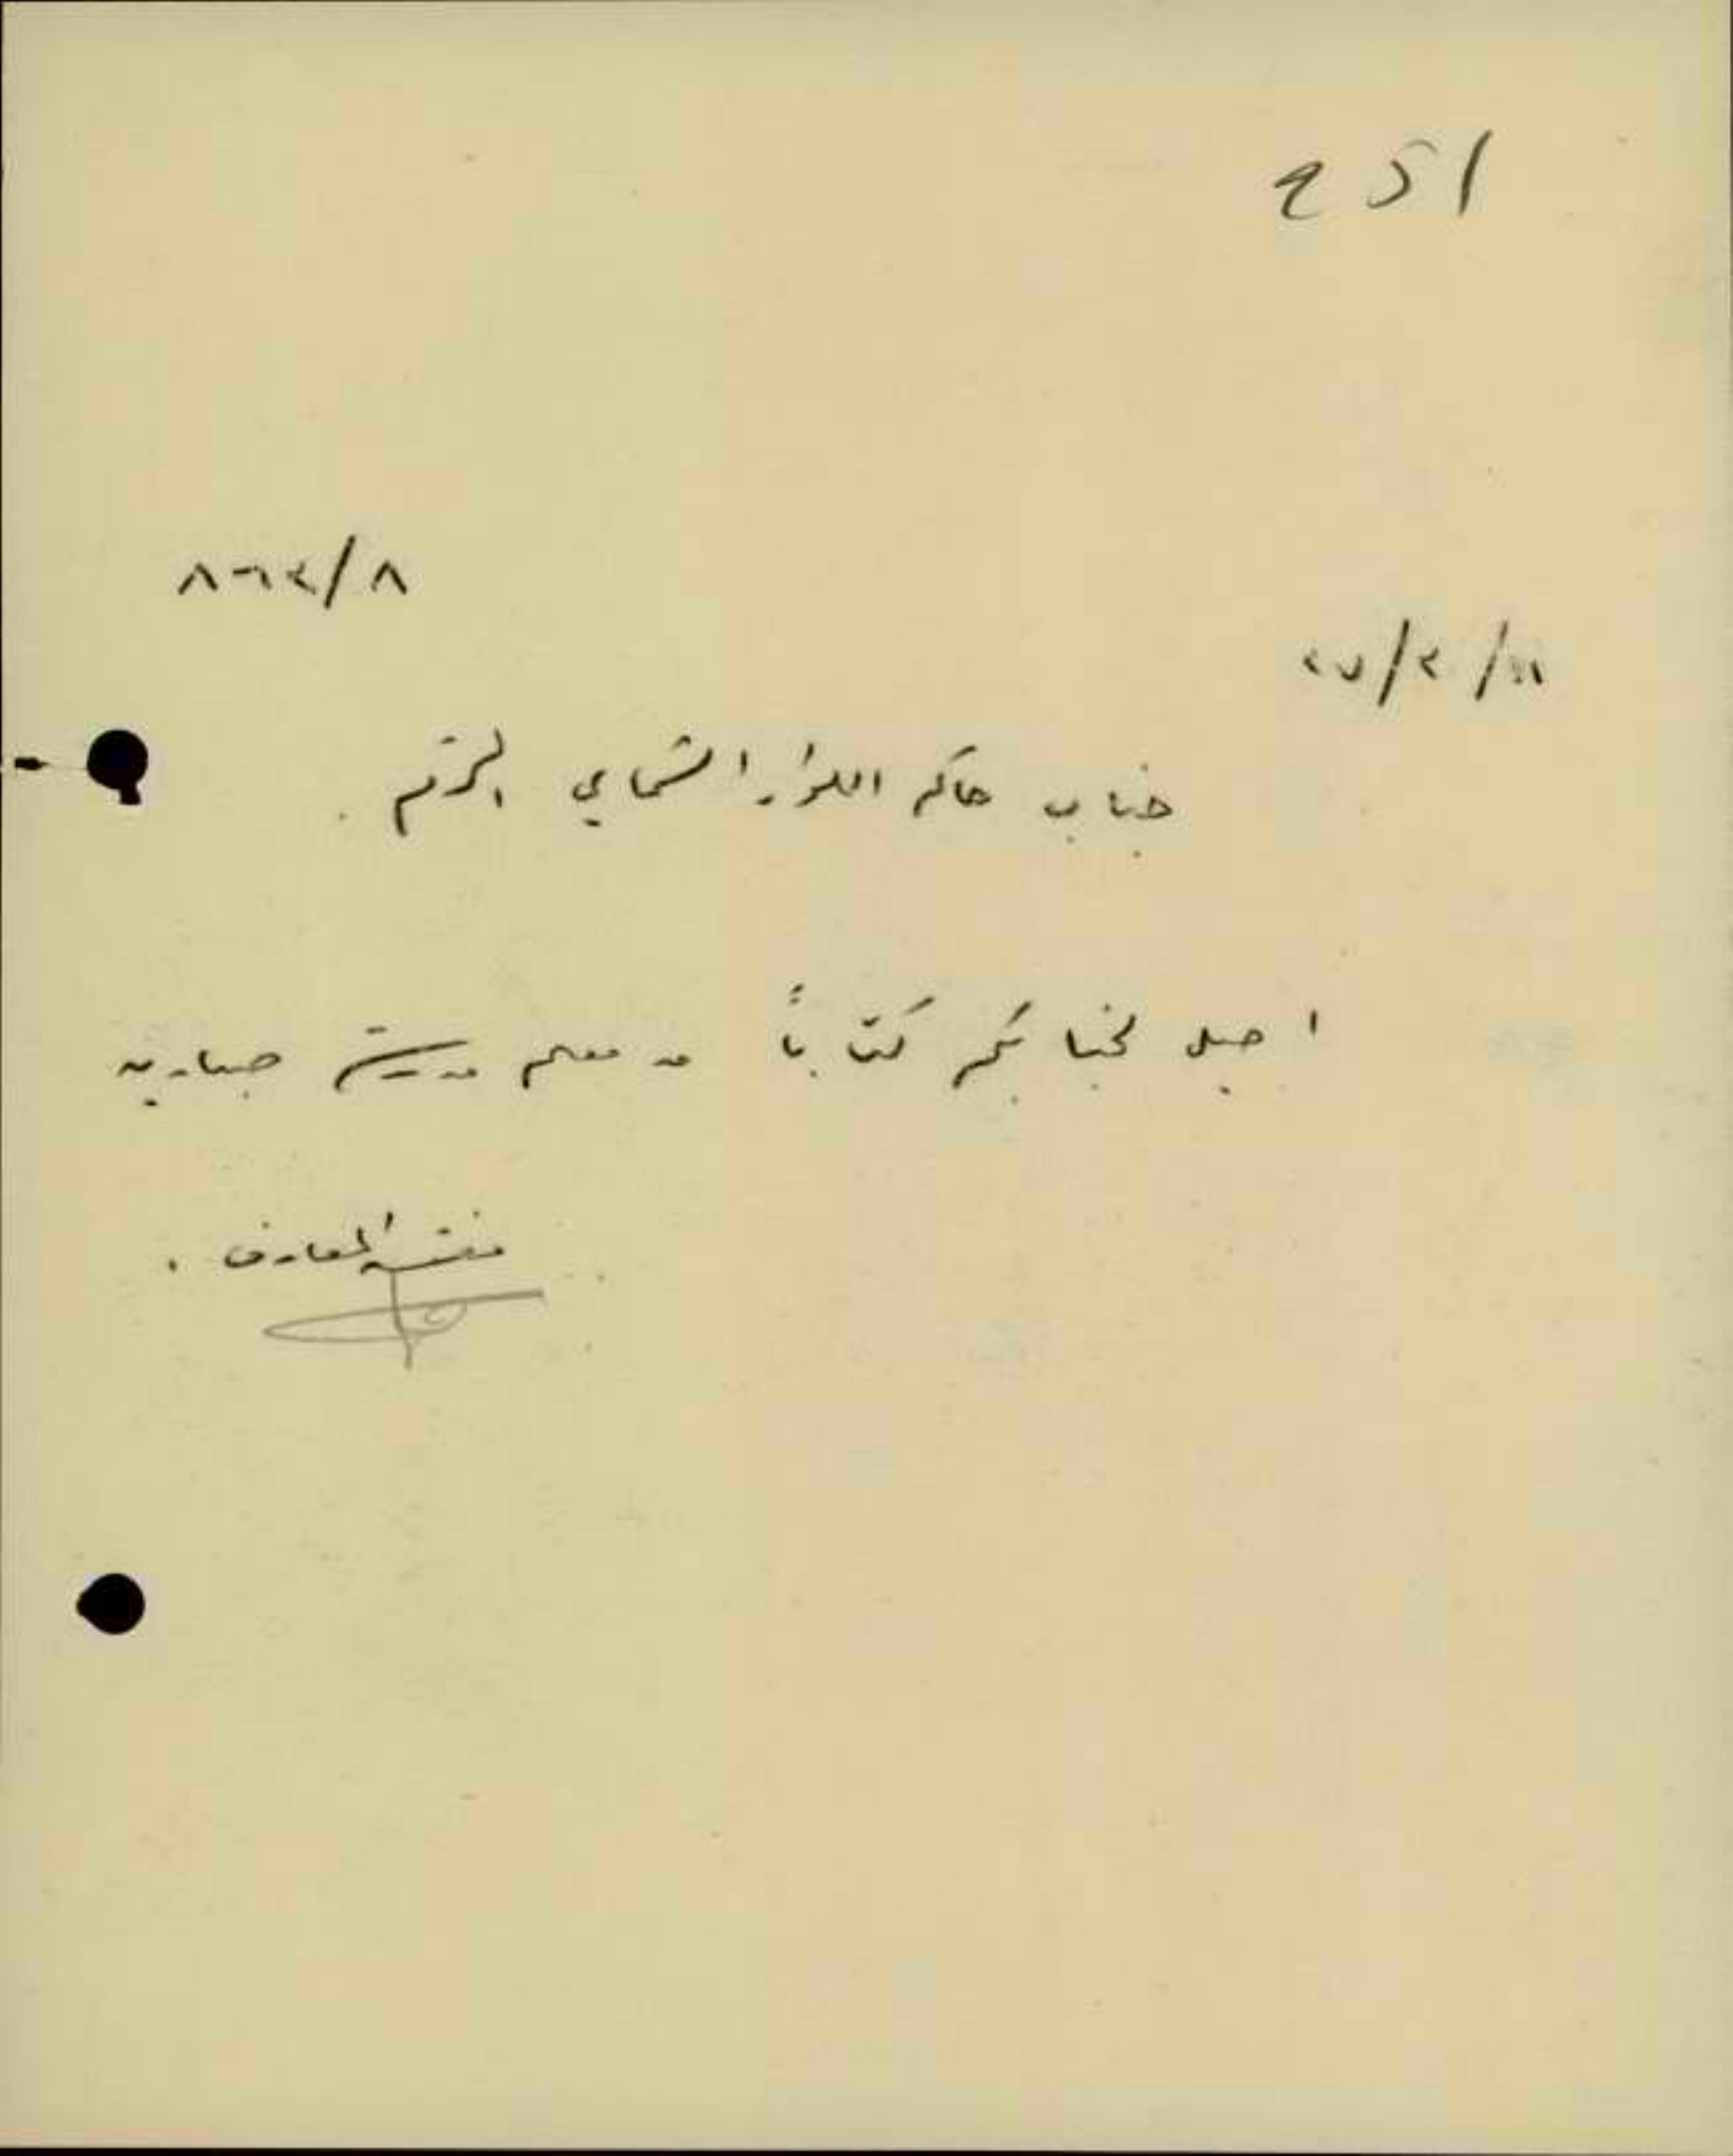 251
٨٦٢/٨
٢٧/٢/١١
جناب حاكم اللواء الشمالي المحترم .
احيل لجنابكم كتاباً من معلم مدرسة صبارين
مفتش المعارف .